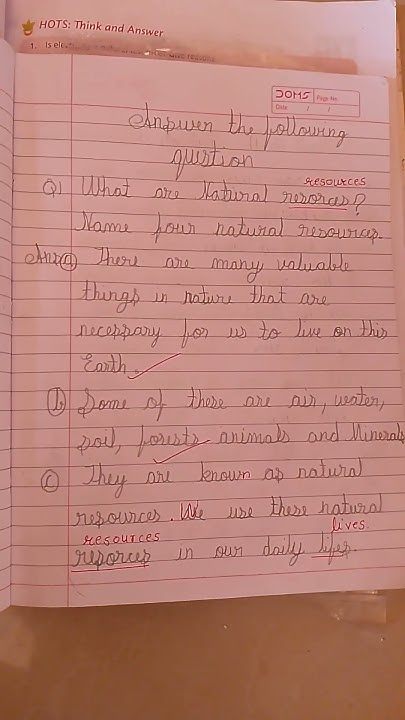 HOTS: Think and Answer
1. Is
DOMS Page No.
Date / /
Answer the following
question
resources
Q1 What are Natural resorces?
Name four natural resources.
Ans a There are many valuable
things in nature that are
necessary for us to live on this
Earth.
b Some of these are air, water,
soil, forests animals and Minerals
c They are known as natural
resources. We use these natural
resources lives.
resorces in our daily lifes.